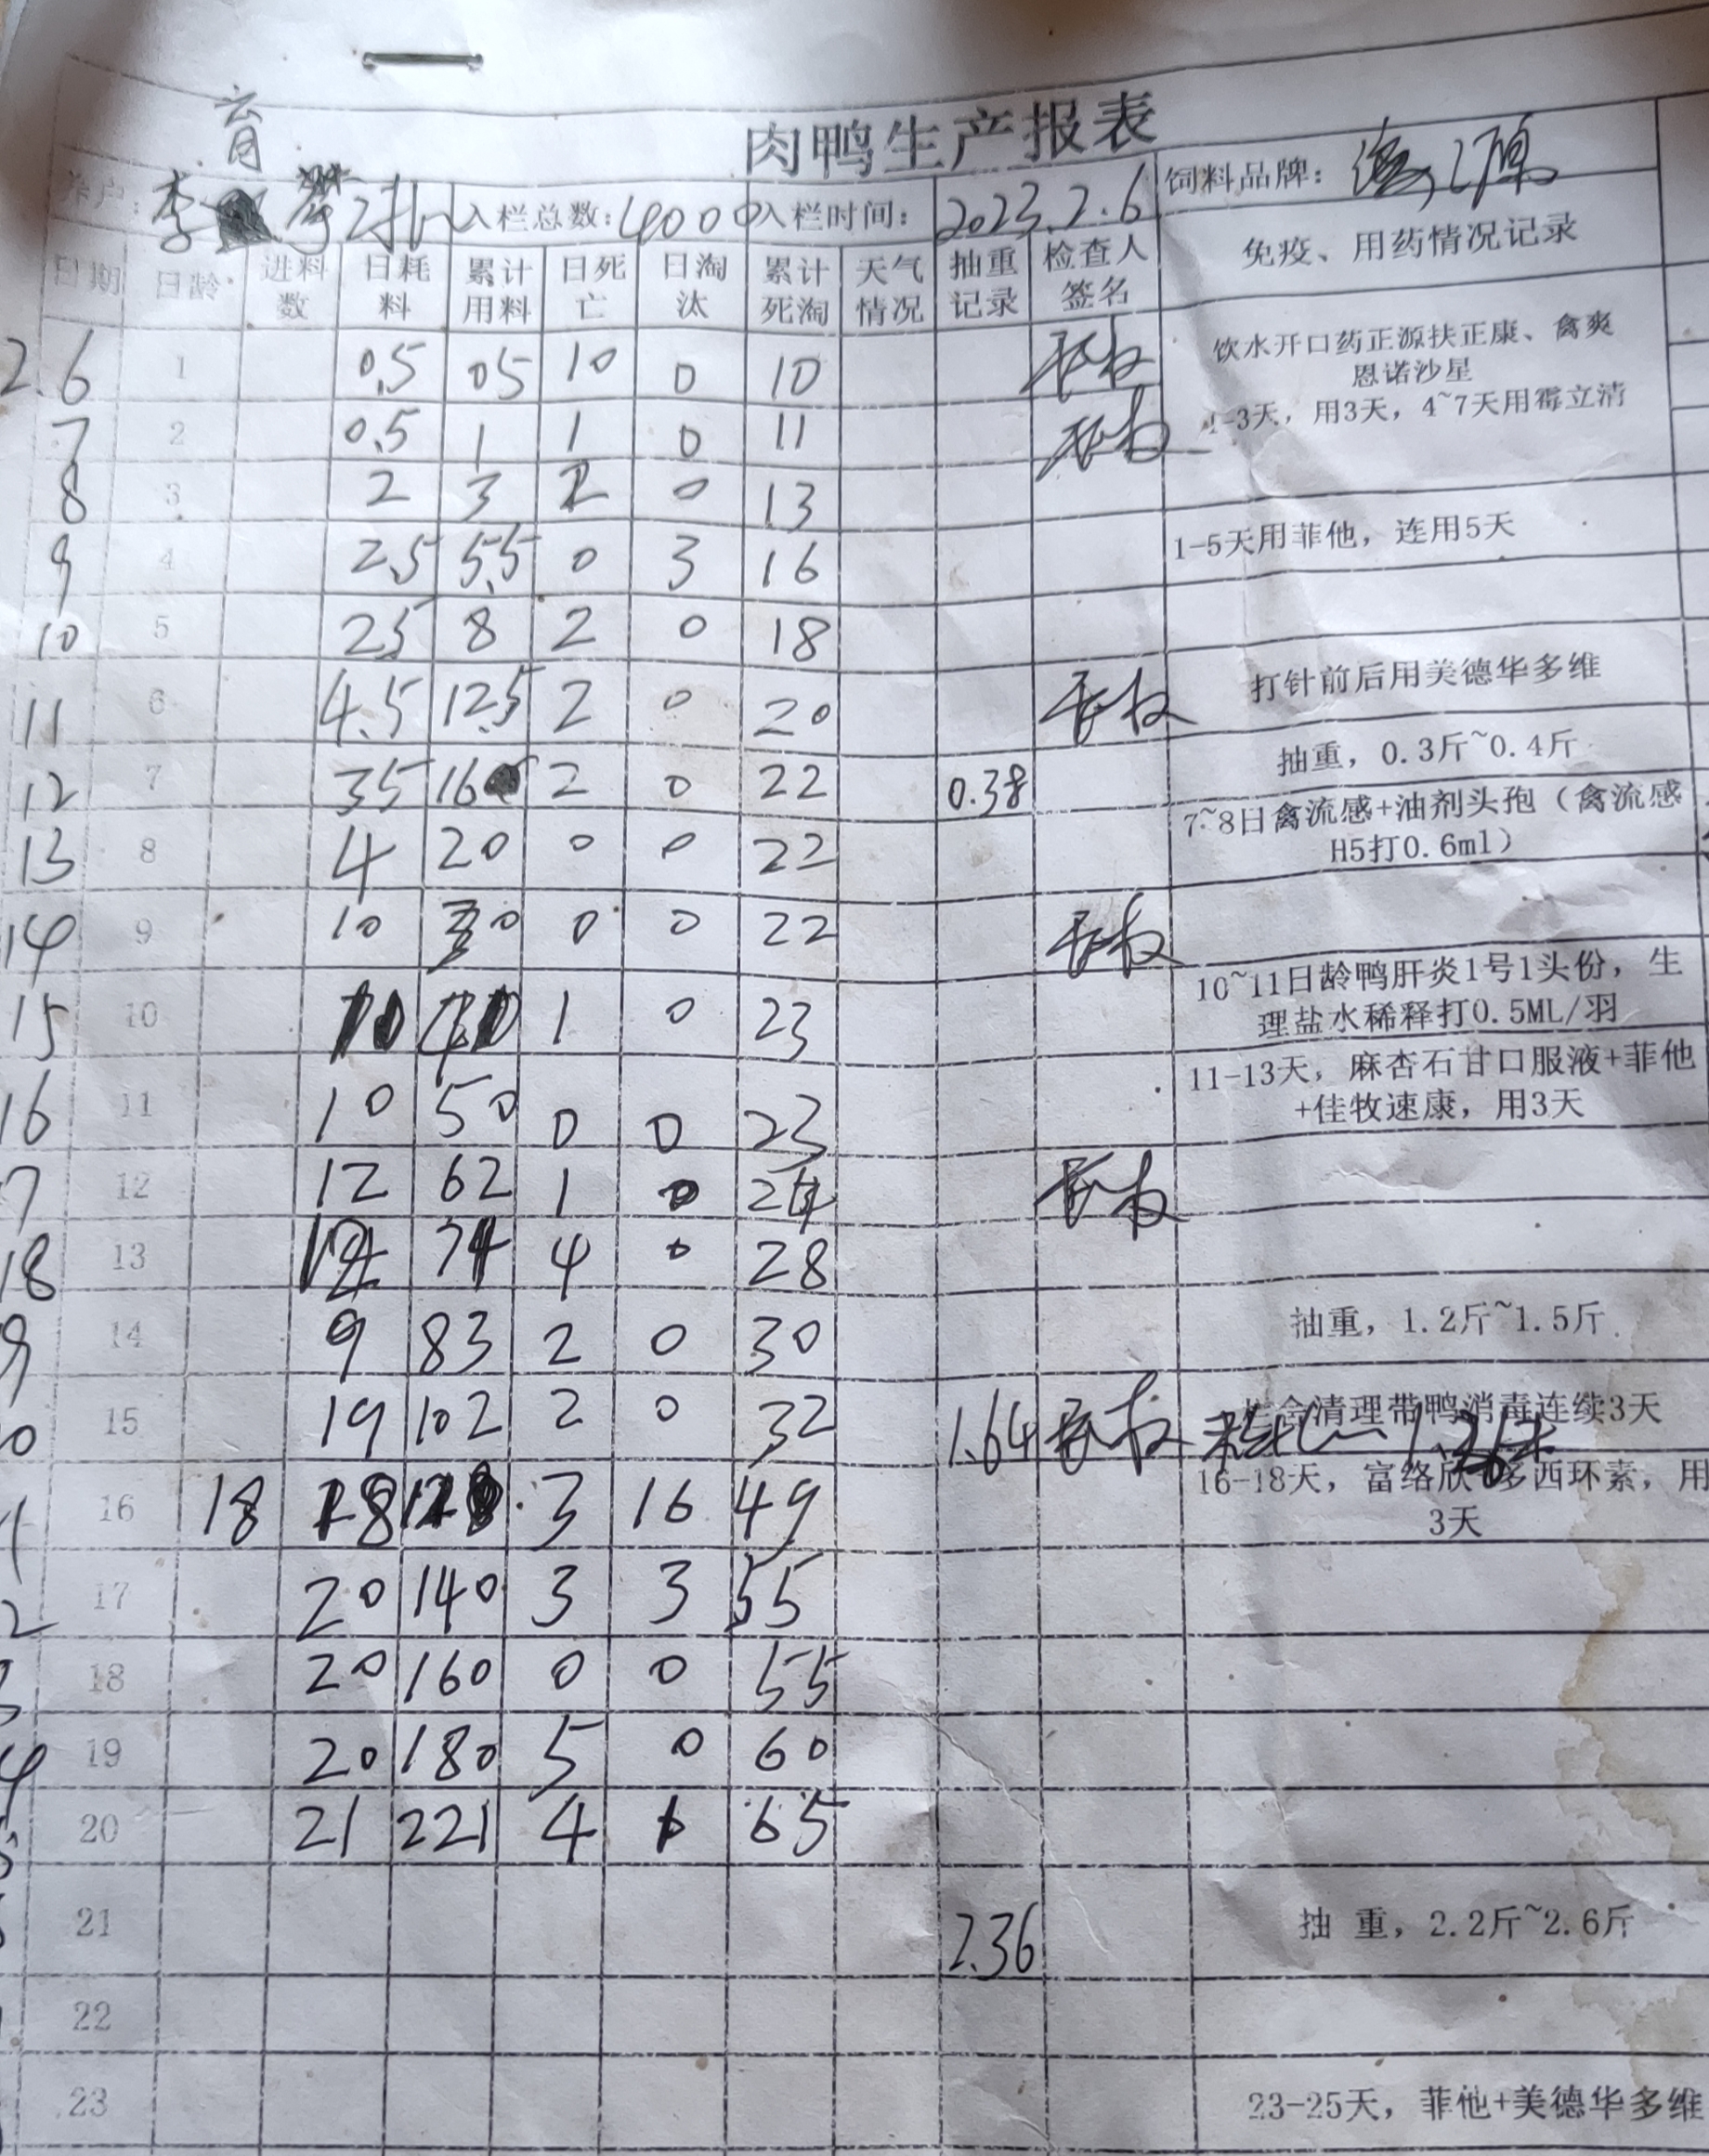 肉鸭生产报表
育
养户: 李 攀 2批 入栏总数: 4000 入栏时间: 2023.2.6 饲料品牌: 源
日期 日龄 进料数 日耗料 累计用料 日死亡 日淘汰 累计死淘 天气情况 抽重记录 检查人签名 免疫、用药情况记录
2.6 1 0.5 05 10 0 10 饮水开口药正源扶正康、禽爽
恩诺沙星
7 2 0.5 1 1 0 11 1-3天，用3天，4~7天用霉立清
8 3 2 3 2 0 13
9 4 2.5 5.5 0 3 16 1-5天用菲他，连用5天
10 5 25 8 2 0 18
11 6 4.5 12.5 2 0 20 打针前后用美德华多维
12 7 35 16 2 0 22 0.38 抽重，0.3斤~0.4斤
13 8 4 20 0 0 22 7~8日禽流感+油剂头孢（禽流感
H5打0.6ml）
14 9 10 30 0 0 22
15 10 10 40 1 0 23 10~11日龄鸭肝炎1号1头份，生
理盐水稀释打0.5ML/羽
16 11 10 50 0 0 23 11-13天，麻杏石甘口服液+菲他
+佳牧速康，用3天
7 12 12 62 1 0 24
18 13 12 74 4 0 28
9 14 9 83 2 0 30 抽重，1.2斤~1.5斤
0 15 19 102 2 0 32 1.64 清理带鸭消毒连续3天
1 16 18 18 3 16 49 16-18天，富络欣 多西环素，用
3天
2 17 20 140 3 3 55
18 20 160 0 0 55
4 19 20 180 5 0 60
20 21 221 4 65
21 2.36 抽 重，2.2斤~2.6斤
22
23 23-25天，菲他+美德华多维